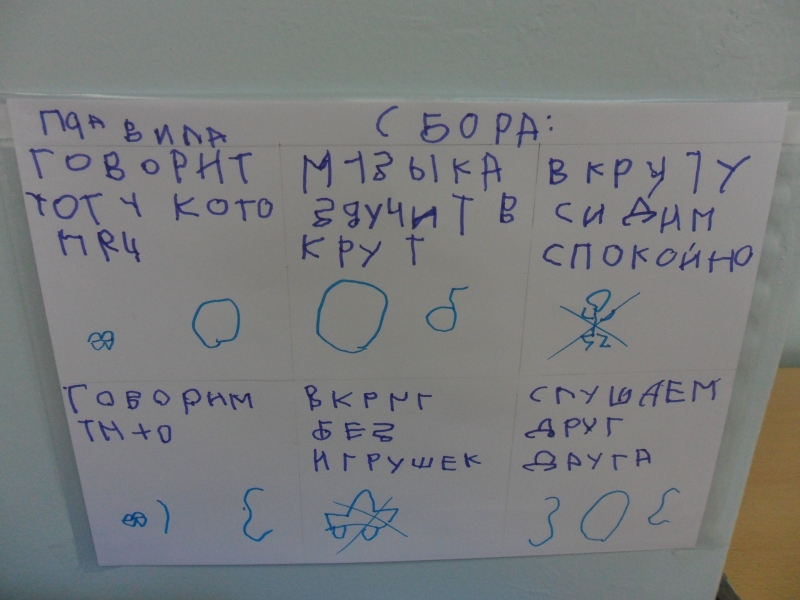 ПДА ВИЛА СБОРА:
ГОВОРИТ
ТОТ У КОТО
МЯЧ
МУЗЫКА
ЗВУЧИТ В
КРУГ
В КРУГУ
СИДИМ
СПОКОЙНО
ГОВОРИМ
ТИХО
ВКРУГ
БЕЗ
ИГРУШЕК
СЛУШАЕМ
ДРУГ
ДРУГА